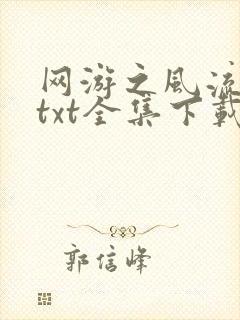 网游之风流
txt全集下载
郭信峰